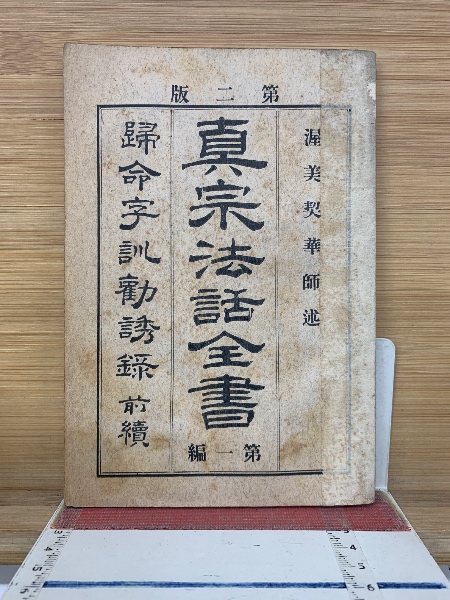 第二版
渥美契華師述
真宗法話全書
第一編
歸命字訓勸誘錄 前續